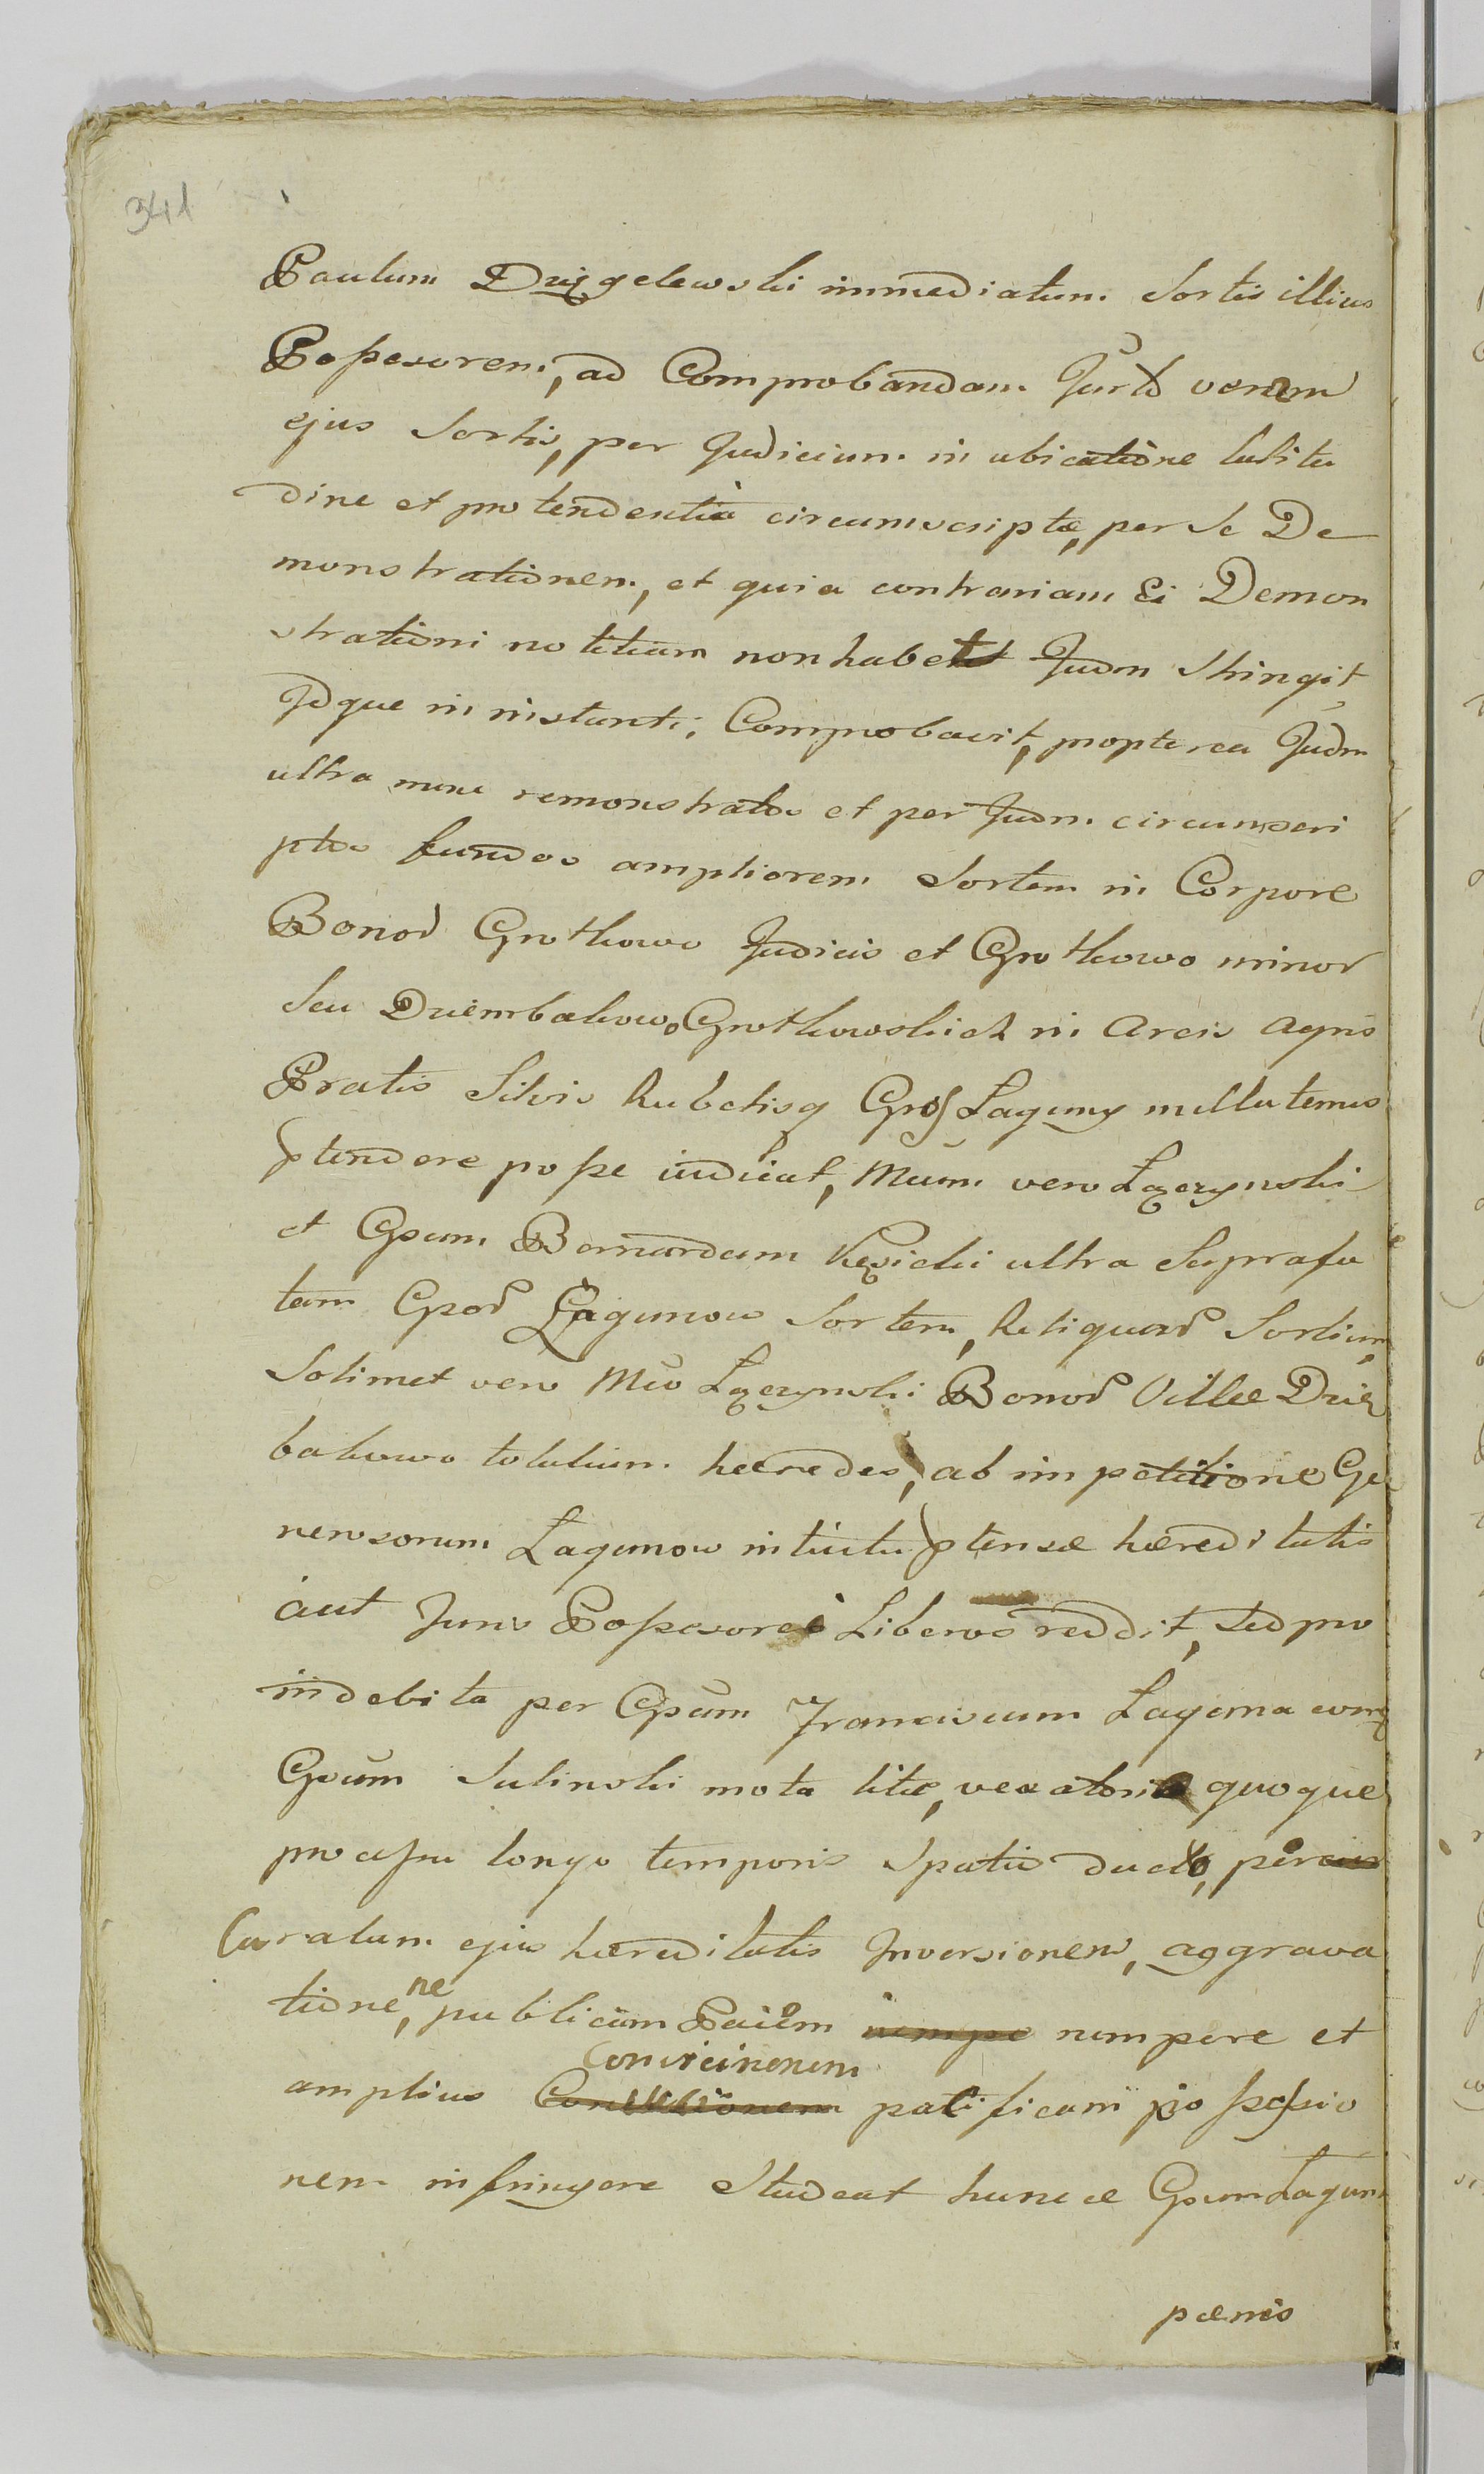 341
Paulum Dzięgelewski immediatum Sortis illius
Possesorem, ad Comprobandam Jurto veram
ejus Sortis, per Judicium in ubicatione latitu
dine et protendentia circumscriptæ, per se De
monstrationem, et quia contrariam Ei Demon
strationi notitiam non habet Judm stringit
Idque in instanti Comprobavit, propterea Judm
ultra nunc remonstratos et per Judm circumscri
ptos fundos ampliorem Sortem in Corpore
Bonor Grotkowo Judicis et Grotkowo minor
seu Dziembakowo Grotkowskich in Areis Agris
Pratis Silvis Rubetisq Gros Laguny nullatenus
ptendere posse iudicat, Mum vero Łączynski
et Gsum Bernardum Kęsicki ultra Suprafa
tam Gsor Lagunow Sortem, Reliquar Sortium,
Solimet vero Mco Łączynski Bonor Villæ Dzię
bakowo totalium hæredes, ab impetitione Ge
nerosorum Lagunow intuitu ptensæ hæreditatis
aut Juris Possesores Liberos reddit, sed pro
indebita per Gsum Franciscum Laguna comq
Gsum Sulinski mota lite, vexatorio quoque
processu longo temporis spatio ducto, per cus
Curatum ejus hæreditatis Inversionem, aggrava
tione, ne publicam Pacem nempe rumpere et
Convicinorum
amplius pacificam possessio
nem infringere Studeat hunce Gsum Lagun
pænis